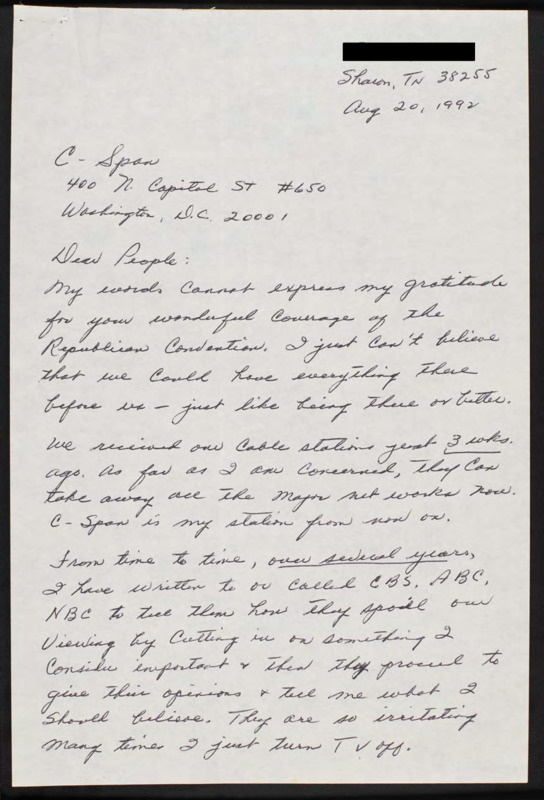 Sharon, TN 38255
Aug 20, 1992
C-Span
400 N. Capitol St #650
Washington, D.C. 20001
Dear People:
My words cannot express my gratitude
for your wonderful coverage of the
Republican Convention. I just can't believe
that we could have everything there
before us – just like being there or better.
We received our cable stations just 3 wks.
ago. As far as I am concerned, they can
take away all the major networks now.
C-Span is my station from now on.
From time to time, over several years,
I have written to or called CBS, ABC,
NBC to tell them how they spoil our
viewing by cutting in on something I
consider important & then they proceed to
give their opinions & tell me what I
should believe. They are so irritating
many times I just turn TV off.